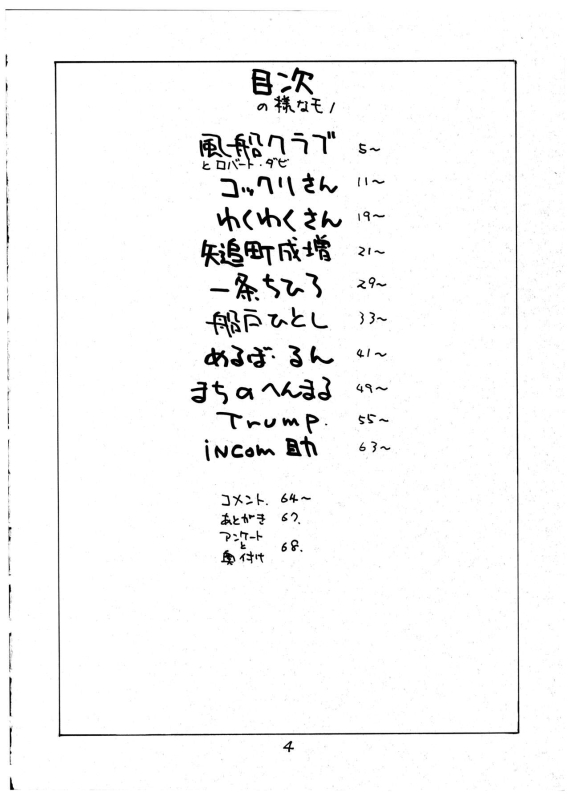 目次
の様なモノ
風船クラブ 5～
とロバート・ダビ
コックリさん 11～
わくわくさん 19～
矢追町成増 21～
一条ちひろ 29～
船戸ひとし 33～
めるば・るん 41～
まちのへんまる 49～
Trump. 55～
iNCom 助 63～
コメント. 64～
あとがき 67.
アンケート
と 68.
奥付け
4